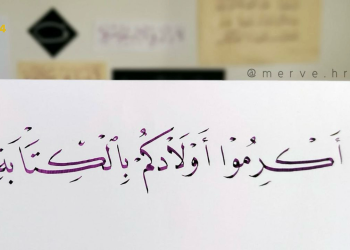 @merve.hr
أَكْرِمُوا أَوْلَادَكُمْ بِالْكِتَابَةِ